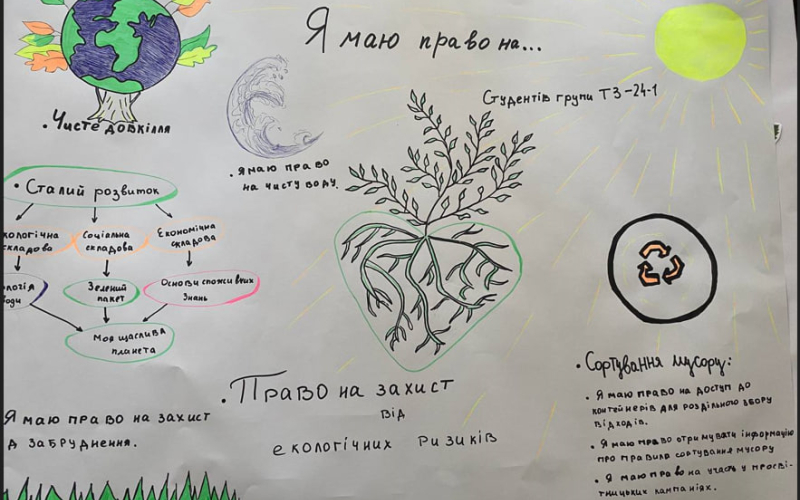 Я маю право на...
Студентів групи ТЗ-24-1
• Чисте довкілля
• Я маю право
на чисту воду.
• Сталий розвиток
кологічна
складово
Соціальна
складова
Економічна
складова
ологія
оди
Зелений
пакет
Основи споживчих
знань
Моя щаслива
планета
Я маю право на захист
д забруднення.
• Право на захист
від
екологічних ризиків
• Сортування мусору:
• Я маю право на доступ до
контейнерів для роздільного збору
відходів.
• Я маю право отримувати інформацію
про правила сортування мусору
• Я маю право на участь у просві-
тницьких кампаніях.